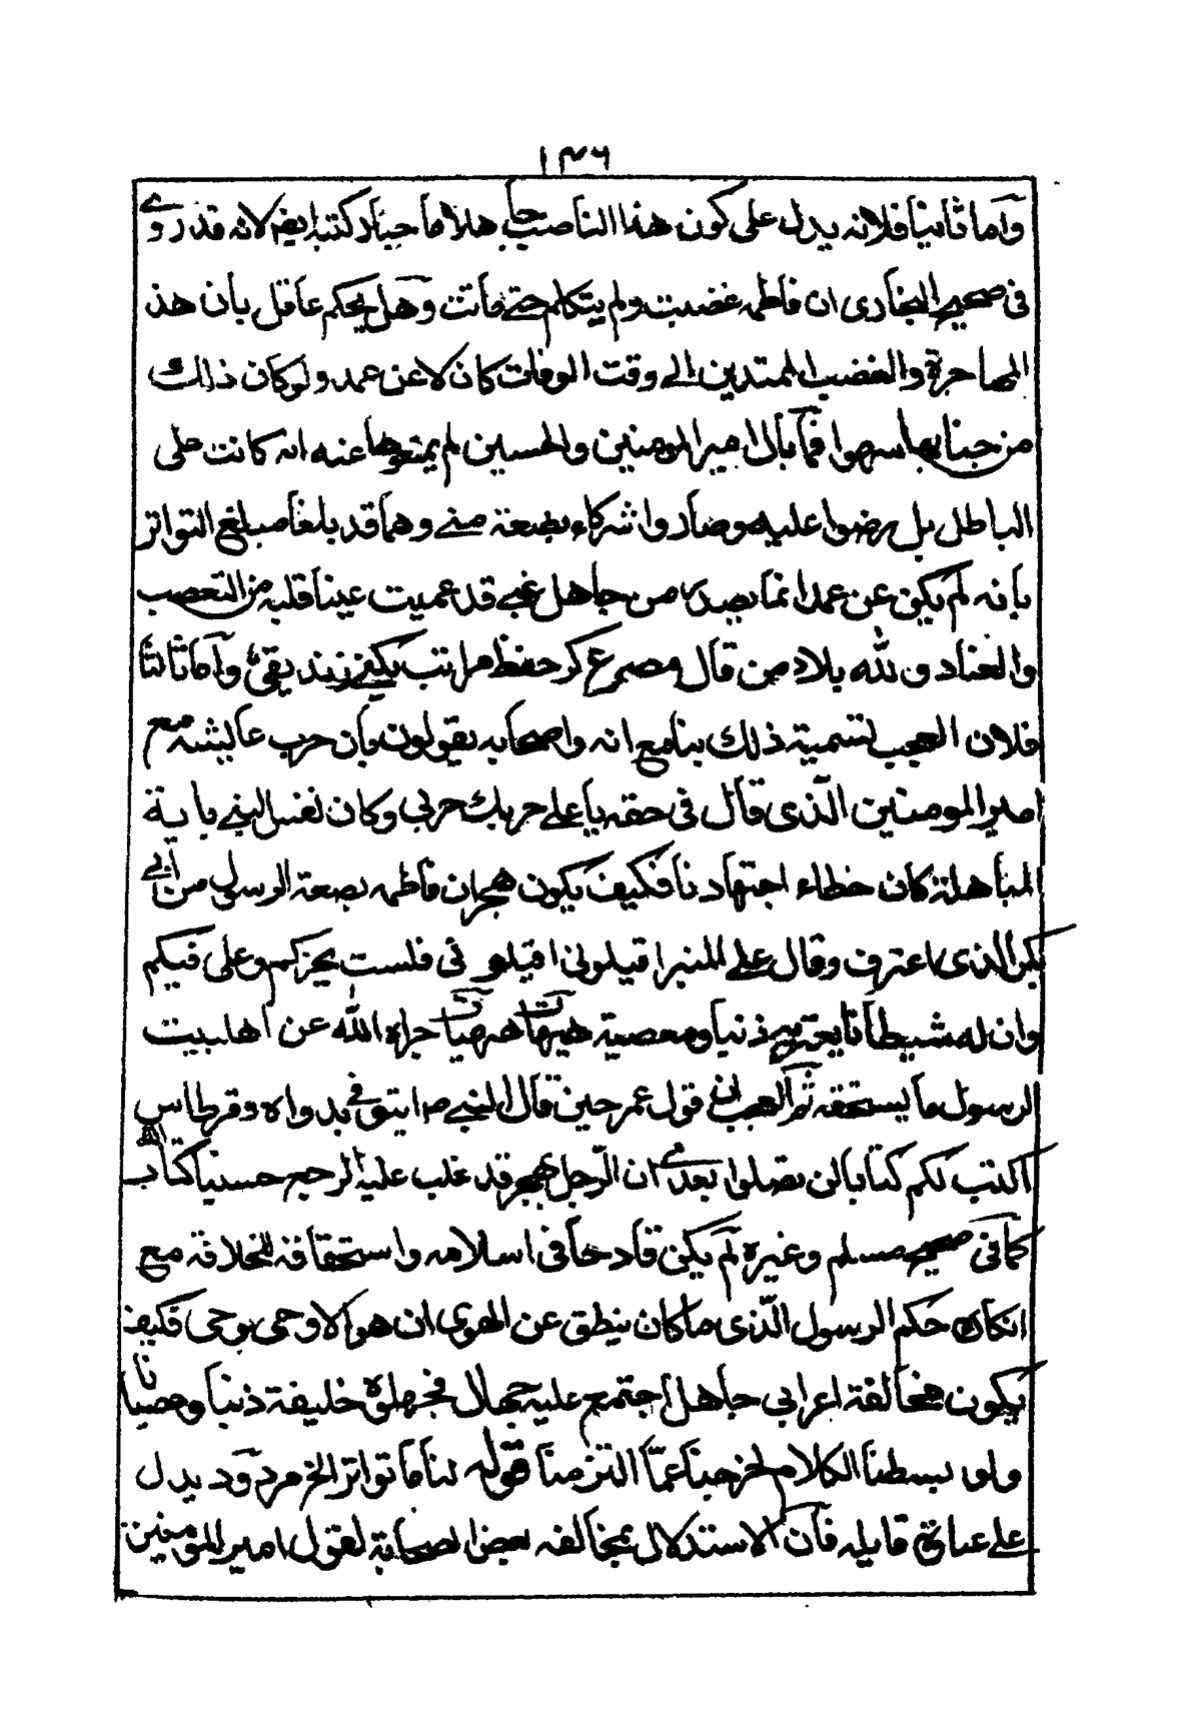 ١٣٦
وآما ثانيا فلانه يدل على كون هذا الناصب جاهلا ما حياد كتبه ايضم لانه قد روى
فى صحيح البخارى ان فاطمه غضبت ولم يتكلم حتے ماتت وهل يحكم عاقل بان هذ
المهاجرة والغضب الممتدين الے وقت الوفات كان لا عن عمد ولو كان ذلك
من جنابها سهوا فما بال امير المومنين والحسين لم يمنعوها عنه انه كانت على
الباطل بل رضوا عليه وصاروا شركاء بضعة منے وهما قد بلغا مبلغ التواتر
بانه لم يكن عن عمد انما يصدر من جاهل غبے قد عميت عينا قلبه من التعصب
والعناد ولله بلاد من قال مصرع گر حفظ مراتب نكنے زنديقى وآما ثالثا
فلان العجب لتسمية ذلك بنا مع انه واصحابه يقولون بان حرب عايشه مع
امير المومنين الّذى قال فى حقه يا على حربك حربى وكان نفس النبے باية
المباهلة كان خطاء اجتهادنا فكيف يكون هجران فاطمه بضعة الرسول من ابے
بكر الذى اعترف وقال علے المنبر اقيلونى اقيلو نى فلست بخيركم وعلى فيكم
وان له شيطانا يعتريه ذنبا ومعصية هيهات هيهات جزاه الله عن اهلبيت
الرسول ما يستحقه ثم العجب ان قول عمر حين قال النبے ص ايتونى بدواة وقرطاس
اكتب لكم كتابا لن تضلوا بعدى ان الرّجل ليهجر قد غلب عليه الوجع حسبنا كتاب الله
كما فى صحيح مسلم وغيره لم يكن قادحا فى اسلامه واستحقاقه للخلافة مع
انكاره حكم الرسول الّذى ما كان ينطق عن الهوى ان هو الا وحى يوحى فكيف
يكون مخالفة اعرابى جاهل اجتمع عليه جهال فجعلوه خليفة ذنبا وعصيانا
ولو بسطنا الكلام لخرجنا عمّا التزمنا قوله لنا ما تواتر الخ مردود يدل
علے عباوة قايله فان الاستدلال بمخالفه بعض الصحابة لقول امير المومنين